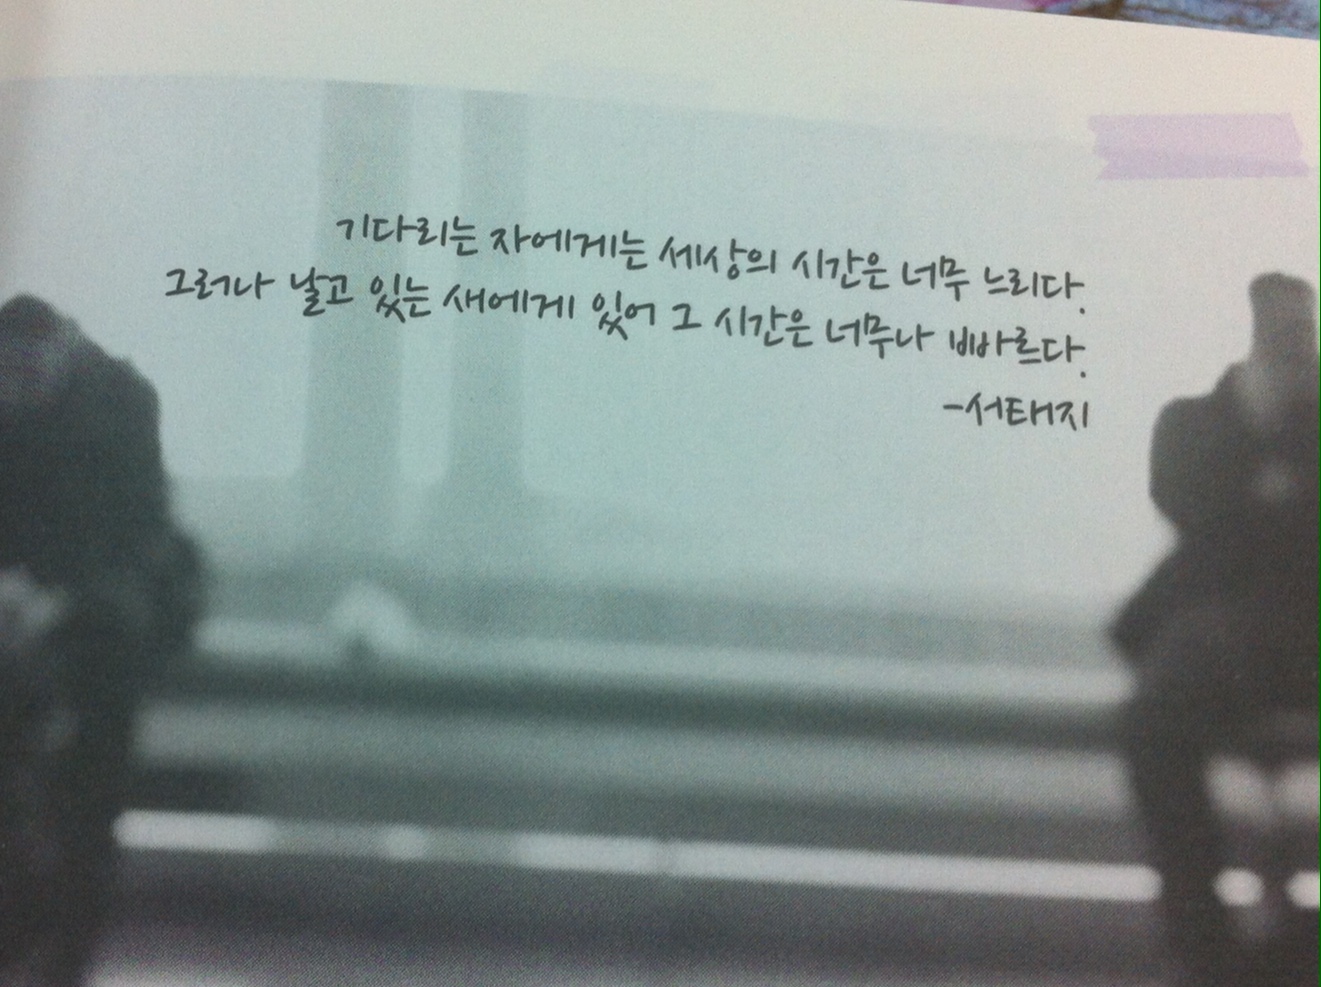 기다리는 자에게는 세상의 시간은 너무 느리다.
그러나 날고 있는 새에게 있어 그 시간은 너무나 빠르다.
-서태지